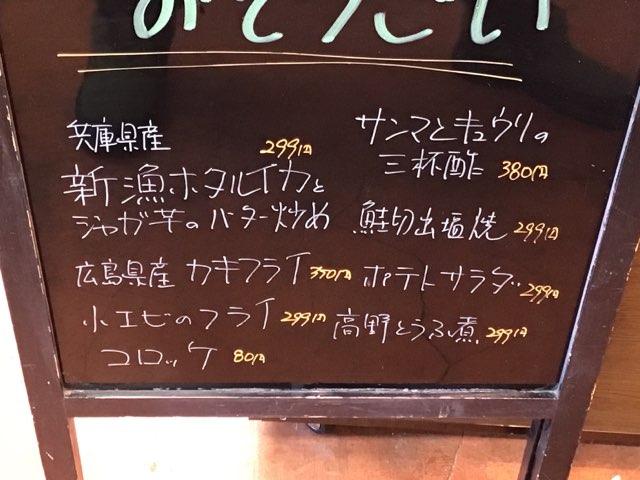 おそうざい
兵庫県産 299円
新漁ホタルイカと
ジャガ芋のバター炒め
広島県産 カキフライ 350円
小エビのフライ 299円
コロッケ 80円
サンマとキュウリの
三杯酢 380円
鮭切出塩焼 299円
ポテトサラダ 299円
高野とうふ煮 299円